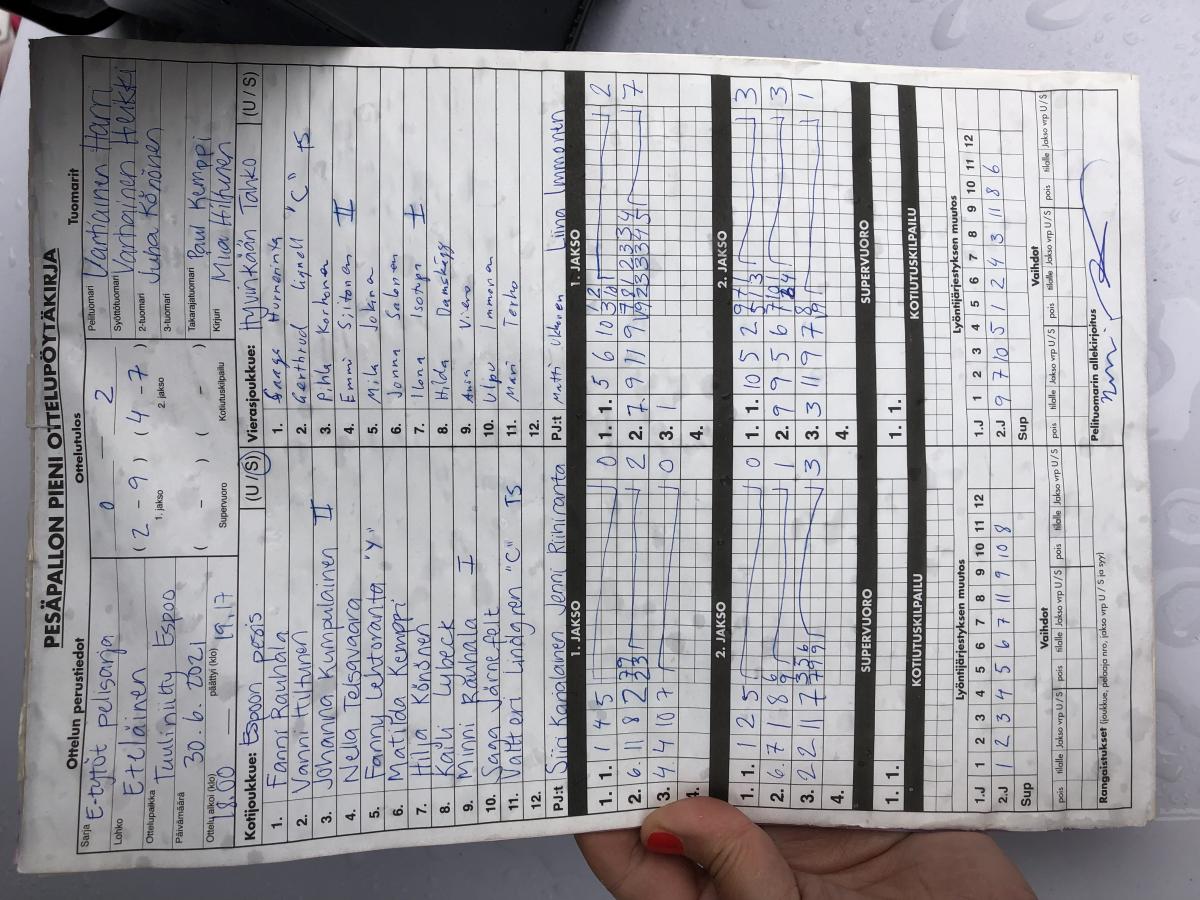 PESÄPALLON PIENI OTTELUPÖYTÄKIRJA
Ottelun perustiedot
Sarja E-tytöt pelisarja
Lohko Eteläinen
Ottelupaikka Tuuliniitty Espoo
Päivämäärä 30.6.2021
Ottelu alkoi (klo) 18.00 päättyi (klo) 19.17
Ottelutulos
0 — 2
( 2 - 9 ) ( 4 - 7 )
1. jakso 2. jakso
( - ) ( - )
Supervuoro Kotiutuskilpailu
Tuomarit
Pelituomari Vartiainen Harri
Syöttötuomari Vartiainen Heikki
2-tuomari Juha Könönen
3-tuomari
Takarajatuomari Paul Kemppi
Kirjuri Mia Hiltunen
Kotijoukkue: Espoon pesis (U / S)
1. Fanni Rauhala
2. Vanni Hiltunen
3. Johanna Kumpulainen II
4. Nella Telsavaara
5. Fanny Lehtoranta "Y"
6. Matilda Kemppi
7. Hilja Könönen
8. Kaili Lybeck
9. Minni Rauhala I
10. Saga Järnefelt
11. Valtteri Lindgren "C" TS
12.
PJ:t Siiri Kanalainen Jenni Riiniranta
Vierasjoukkue: Hyvinkään Tahko (U / S)
1.
2. Gerthrud Lignell "C" TS
3. Pihla Korhonen
4. Emmi Siltonen II
5. Mila Jokina
6. Jonna Salonen
7. Ilona Isotupa I
8. Hilda
9. Vieno
10. Upu Immonen
11. Mari Terho
12.
PJ:t Matti Ukkonen Liina Immonen
1. JAKSO
1. 1. 1 4 5 0
2. 6. 11 8 2 2
3. 4 10 7 0
4.
1. JAKSO
1. 1. 5 6 10 2
2. 7. 9 11 9 7
3. 1
4.
2. JAKSO
1. 1. 1 2 5 0
2. 6. 7 1 8 1
3. 2 2 11 7 3
4.
2. JAKSO
1. 1. 10 5 2 3
2. 9 9 5 6 3
3. 3 11 9 7 1
4.
SUPERVUORO
1. 1.
SUPERVUORO
1. 1.
KOTIUTUSKILPAILU
KOTIUTUSKILPAILU
Lyöntijärjestyksen muutos
1.J 1 2 3 4 5 6 7 8 9 10 11 12
2.J 1 2 3 4 5 6 7 11 9 10 8
Sup
Lyöntijärjestyksen muutos
1.J 1 2 3 4 5 6 7 8 9 10 11 12
2.J 9 7 10 5 1 2 4 3 11 8 6
Sup
Vaihdot
pois tilalle Jakso vrp U / S pois tilalle Jakso vrp U / S pois tilalle Jakso vrp U / S
Vaihdot
pois tilalle Jakso vrp U / S pois tilalle Jakso vrp U / S pois tilalle Jakso vrp U / S
Rangaistukset (joukkue, pelaaja nro, jakso vrp U / S ja syy)
Pelituomarin allekirjoitus